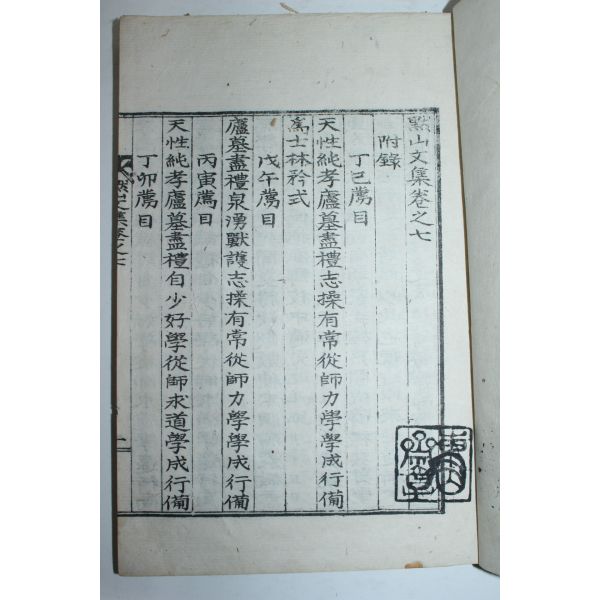 默山文集卷之七
附錄
丁巳薦目
天性純孝廬墓盡禮志操有常從師力學學成行備
爲士林矜式
戊午薦目
廬墓盡禮泉湧獸護志操有常從師力學學成行備
丙寅薦目
天性純孝廬墓盡禮自少好學從師求道學成行備
丁卯薦目
默山文集卷之七
一